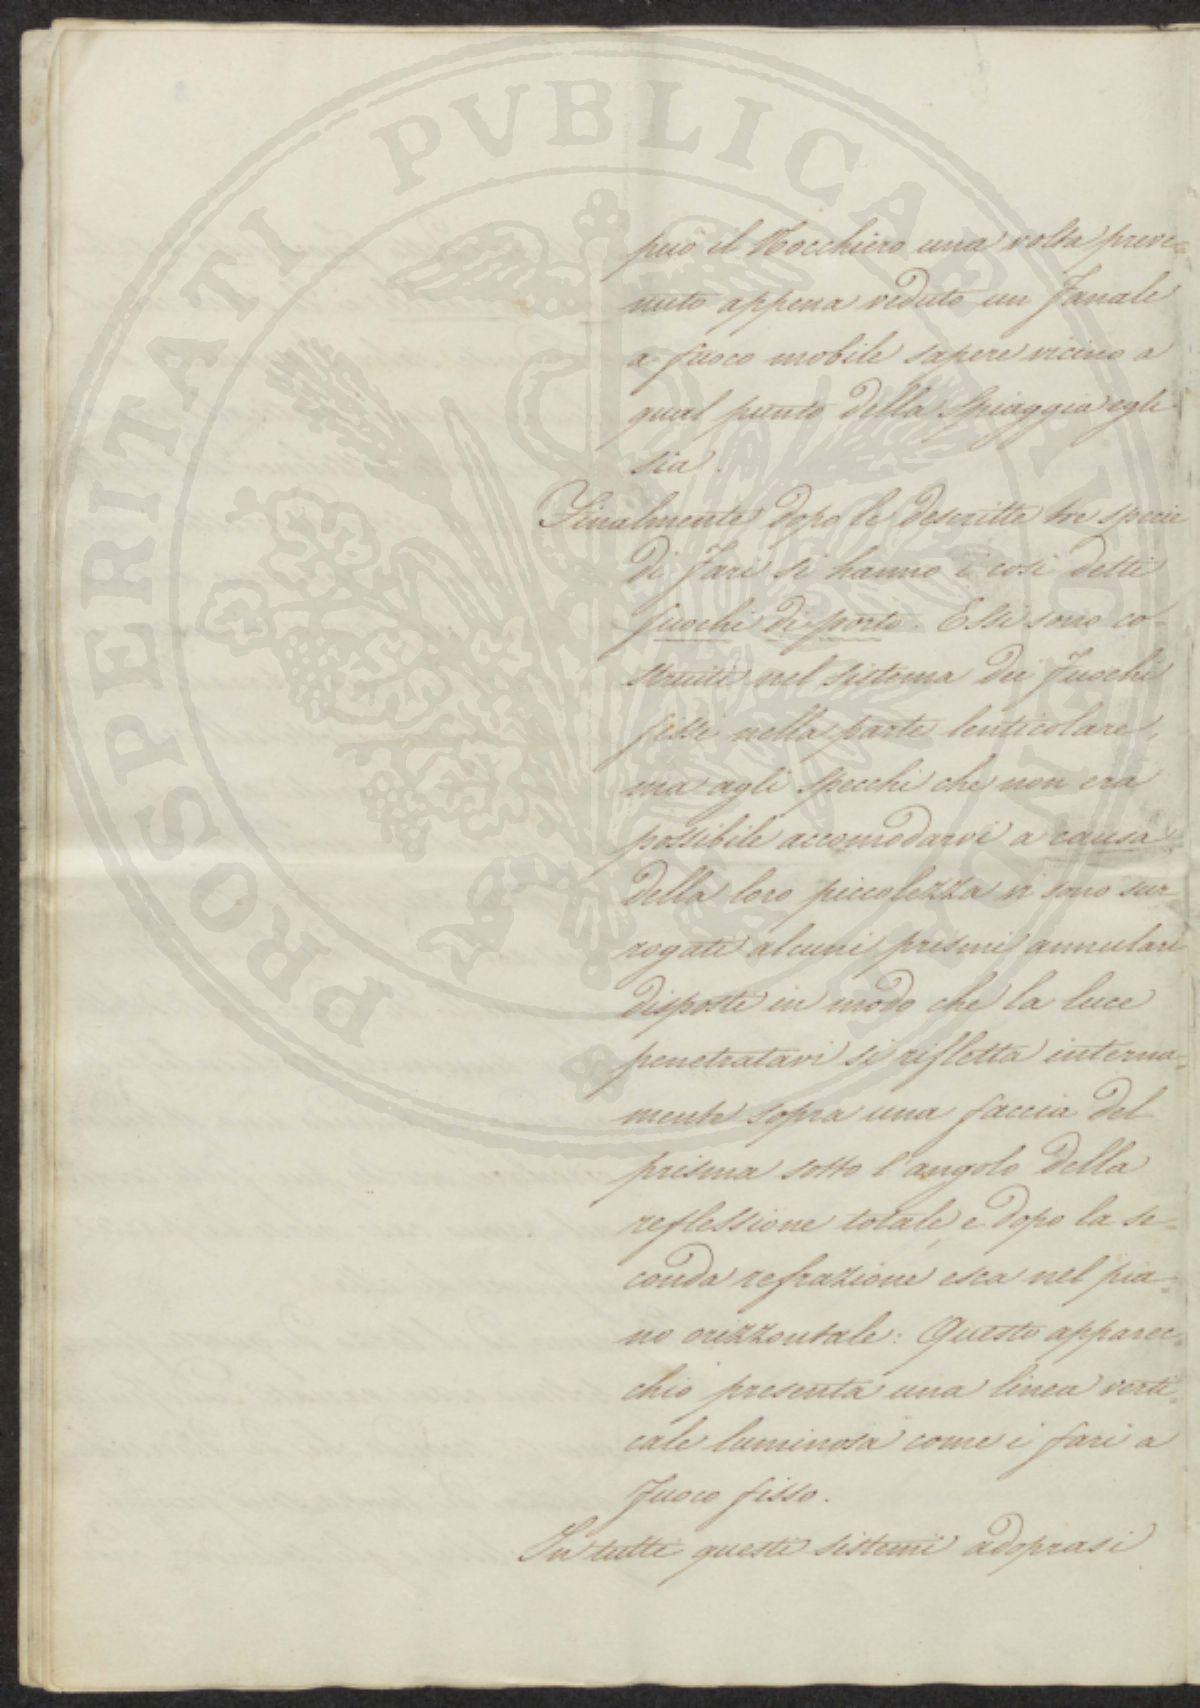 PROSPERITATI PVBLICAE
può il Nocchiero una volta preve=
nuto appena veduto un Fanale
a fuoco mobile sapere vicino a
qual punto della Spiaggia egli
sia.
Finalmente dopo le descritte tre specie
di Fari si hanno i così detti
fuochi di porto. Essi sono co-
struiti nel sistema dei Fuochi
fissi nella parte lenticolare,
ma agli specchi che non era
possibile accomodarvi a causa
della loro piccolezza vi sono sur
rogati alcuni prismi annulari
disposti in modo che la luce
penetratavi si rifletta interna=
mente sopra una faccia del
prisma sotto l'angolo della
reflessione totale, e dopo la se=
conda refrazione esca nel pia=
no orizzontale: Questo apparec=
chio presenta una linea verti=
cale luminosa come i fari a
Fuoco fisso.
In tutti questi sistemi adoprasi